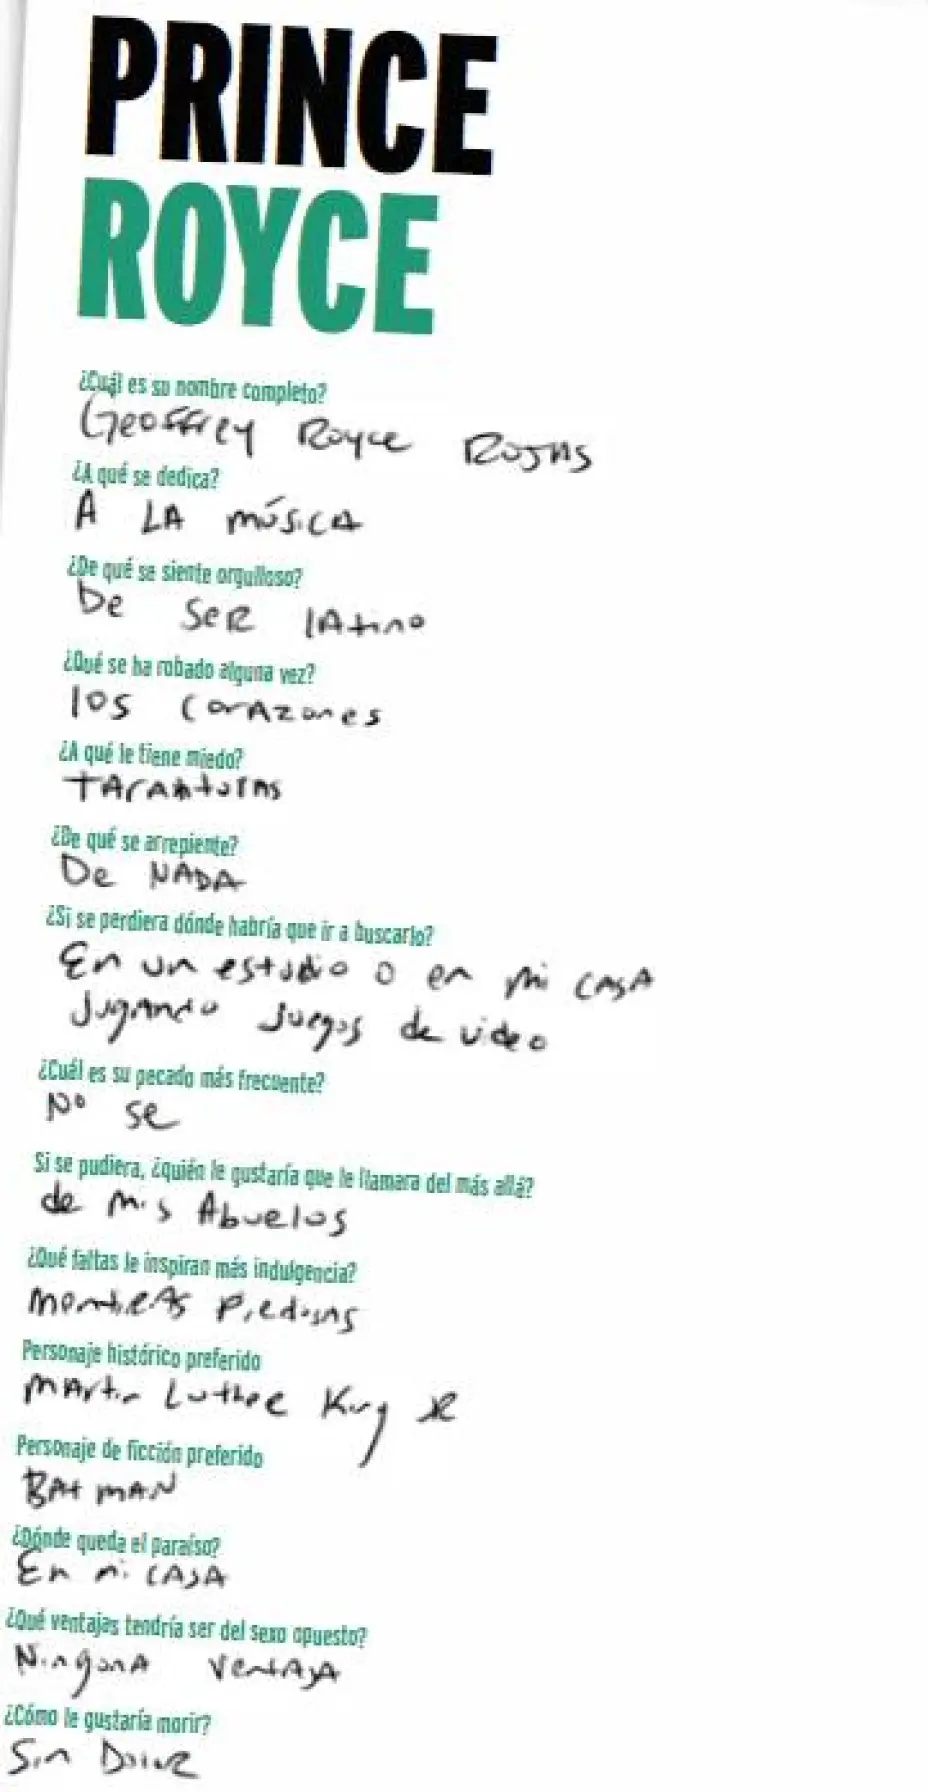 PRINCE
ROYCE
¿Cuál es su nombre completo?
Geoffrey Royce Rojas
¿A qué se dedica?
A LA música
¿De qué se siente orgulloso?
De SER latino
¿Qué se ha robado alguna vez?
los corazones
¿A qué le tiene miedo?
tarantulas
¿De qué se arrepiente?
De NADA
¿Si se perdiera dónde habría que ir a buscarlo?
En un estudio o en mi casa
Jugando juegos de video
¿Cuál es su pecado más frecuente?
No se
Si se pudiera, ¿quién le gustaría que le llamara del más allá?
de mis Abuelos
¿Qué faltas le inspiran más indulgencia?
mentiras Piedosas
Personaje histórico preferido
Martin Luther King JR
Personaje de ficción preferido
BATMAN
¿Dónde queda el paraíso?
En mi CASA
¿Qué ventajas tendría ser del sexo opuesto?
Ninguna ventaja
¿Cómo le gustaría morir?
Sin Dolor